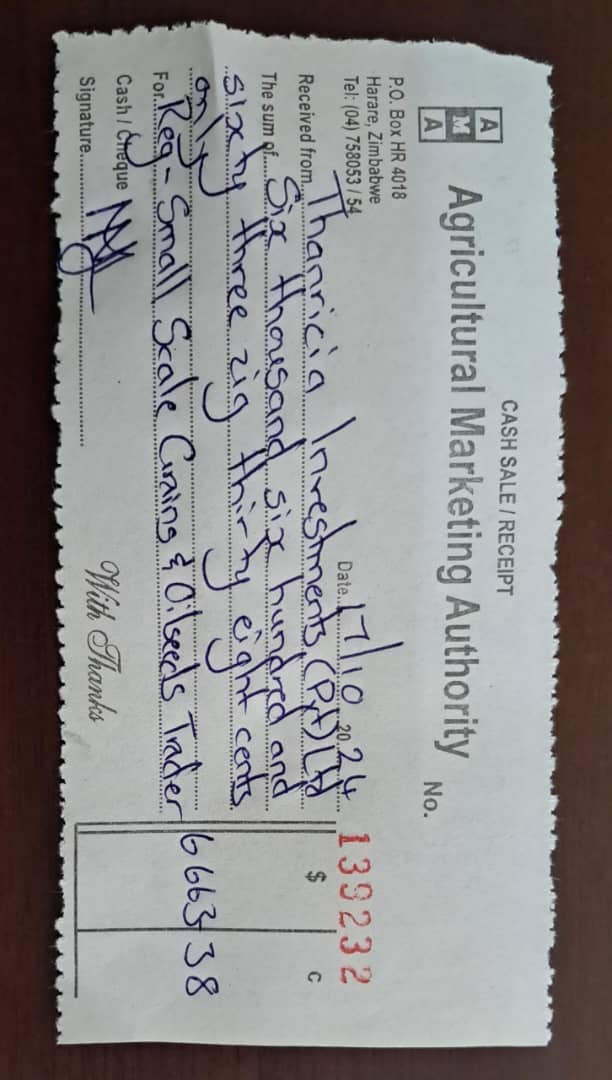 CASH SALE / RECEIPT
A
M
A
Agricultural Marketing Authority
No. 139232
P.O. Box HR 4018
Harare, Zimbabwe
Tel: (04) 758053 / 54
Date 17/10 2024
Received from Thanricia Investments (Pvt) Ltd
The sum of Six thousand six hundred and
sixty three zig thirty eight cents
only
$ c
For Reg - Small Scale Grains & Oilseeds Trader 6663-38
Cash / Cheque
Signature
With Thanks